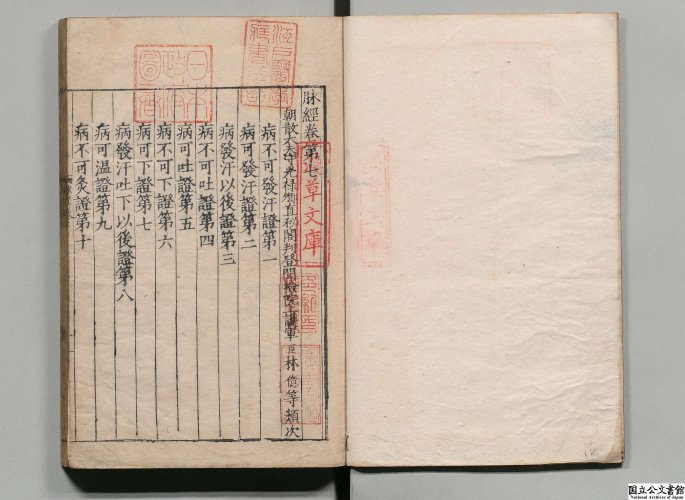 脉經卷第七
朝散大夫守光祿卿直祕閣判登聞檢院上護軍臣林億等類次
病不可發汗證第一
病可發汗證第二
病發汗以後證第三
病不可吐證第四
病可吐證第五
病不可下證第六
病可下證第七
病發汗吐下以後證第八
病可溫證第九
病不可灸證第十
日本
政府
圖書
草文庫
国立公文書館
National Archives of Japan